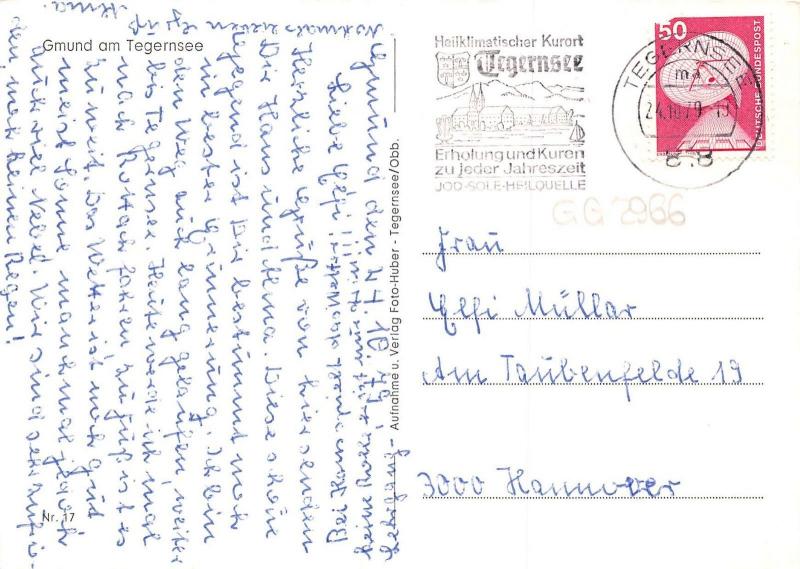 Gmund am Tegernsee
Nochmals einen Gruß
Irma.
Gmund den 24.10.79
Liebe Elfi!
Herzliche Grüße von hier senden
Dir Hans und Irma. Diese schöne
Gegend ist Dir bestimmt noch
in bester Erinnerung. Ich bin
den Weg auch lang gelaufen, weiter
bis Tegernsee. Heute werde ich mal
nach Rottach fahren zu Fuß ist es
zu weit. Das Wetter ist noch gut
meist Sonne manchmal jedoch
auch viel Nebel. Wir sind sehr zufrie-
den, nur keinen Regen!
Nr. 17
Aufnahme u. Verlag Foto-Huber - Tegernsee/Obb.
Heilklimatischer Kurort
Tegernsee
Erholung und Kuren
zu jeder Jahreszeit
JOD-SOLE-HEILQUELLE
TEGERNSEE
ma
24.10.79
50
DEUTSCHE BUNDESPOST
GG 2966
Frau
Elfi Müllar
Am Taubenfelde 19
3000 Hannover